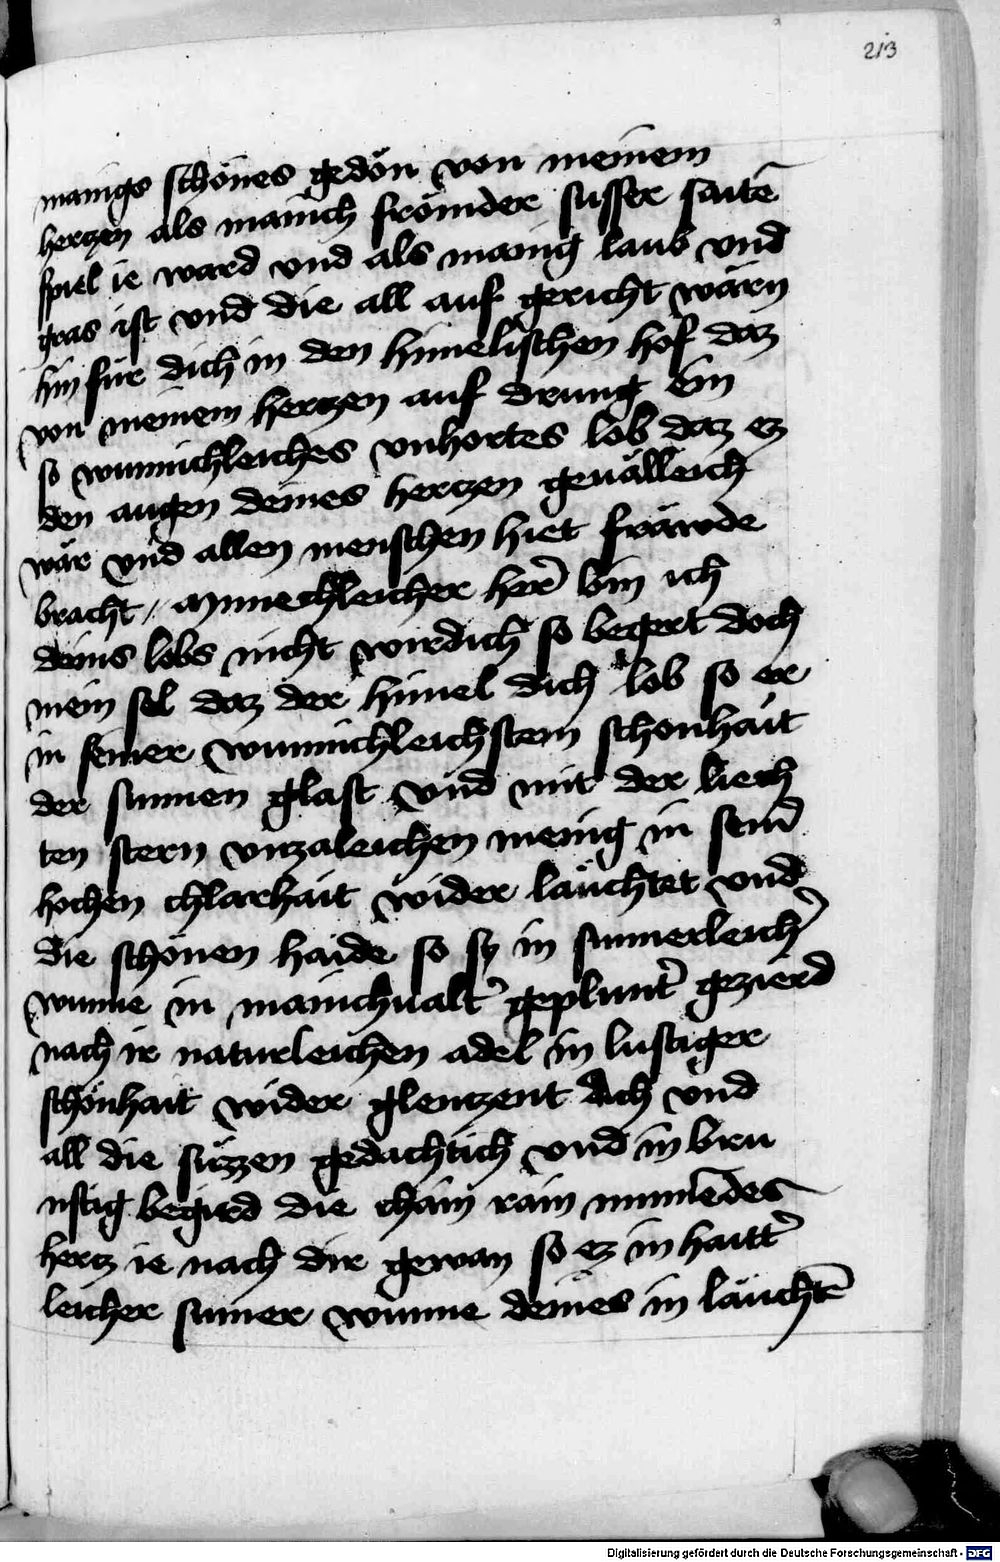 213
manigs schönes gedön von meinem
hertzen als manich frömder susser saitē
spiel ie ward vnd als manig laub vnd
gras ist vnd die all auf gericht wärn
hin für dich in den himelischen hof daz
von meinem hertzen auf drung ein
so wunnichleiches vnhortes lob daz ez
den augen deines hertzen geuälleich
wär vnd allen menschen hiet fräwde
bracht / Mynnechleicher her̄ bin ich
deins lobs nicht wirdich so begert doch
mein sel daz der himel dich lob so er
in seiner wunnichleichstem schonhait
der sunnen glast vnd mit der liech
ten stern vnzaleichen menig in sein̄
hochen chlarhait wider läuchtet vnd
die schönen haide so sy in sumerleich̄
wunne in manichualt̄ geplumt̄ gezierd
nach ir naturleichen adel in lustiger
schönhait wider glentzent dich vnd
all die süzzen gedachtich vnd in bru
nstig begird die chain rain minnēdes
hertz ie nach dir gewan so ez in haitt̄
leicher sumer wunne deines in läuchtē
Digitalisierung gefördert durch die Deutsche Forschungsgemeinschaft - DFG